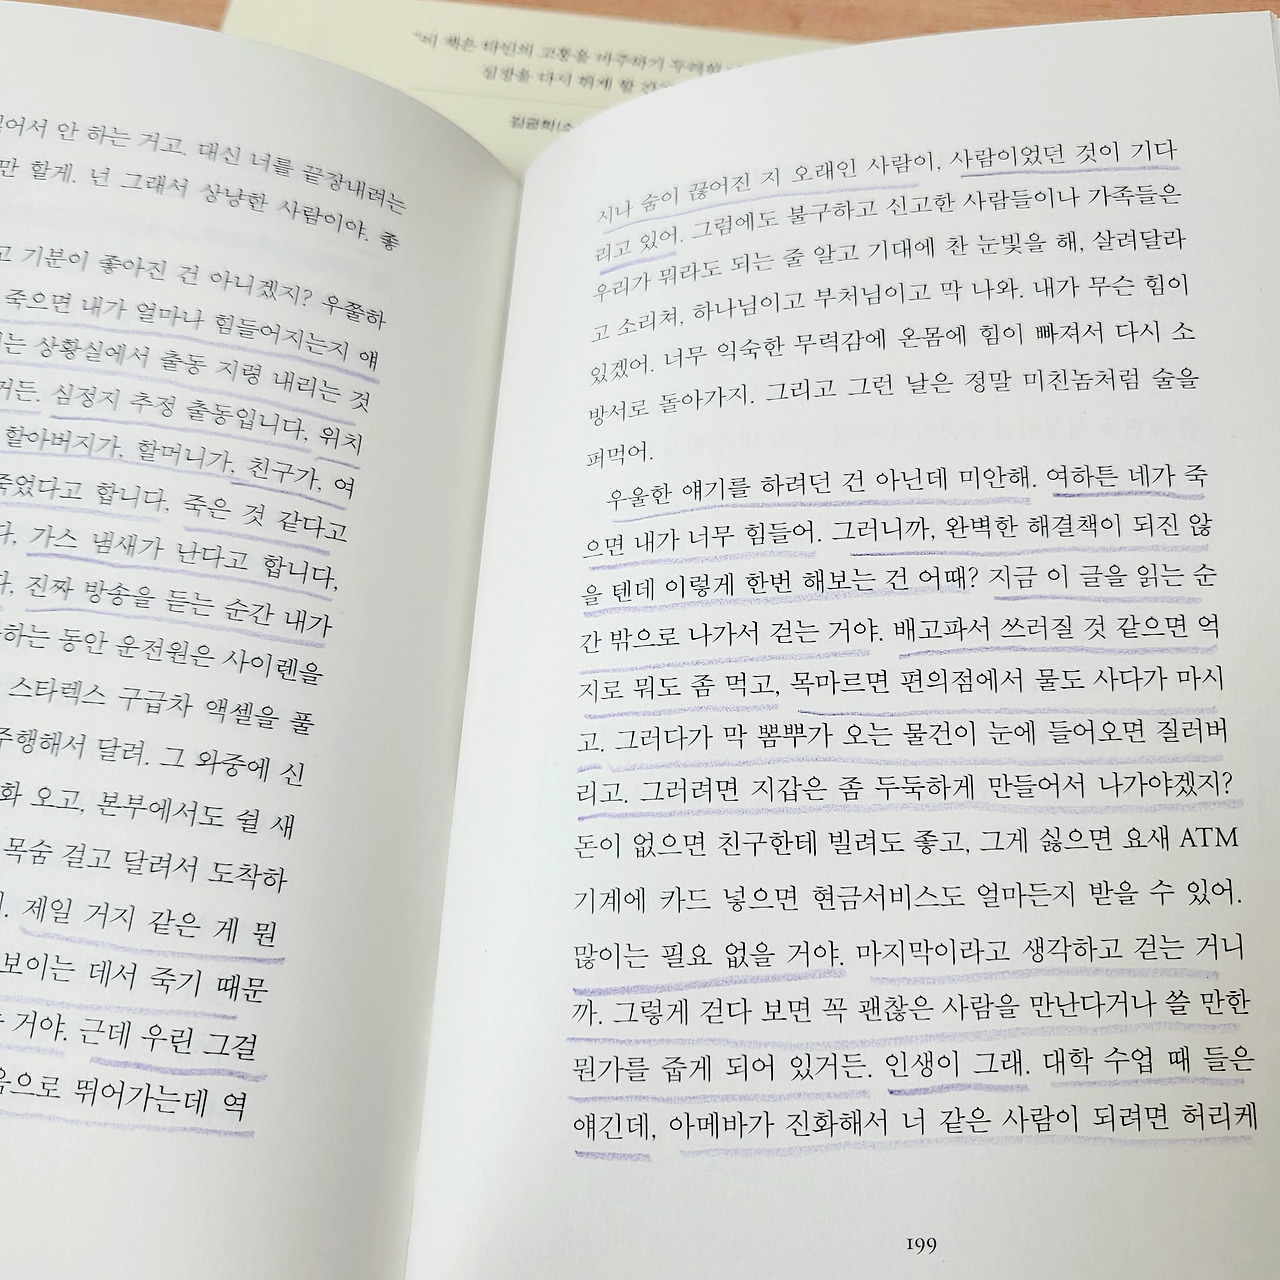 책은 타인의 고통을 마주하기 두려워
심장을 다시 뛰게 할
김금희(소
어서 안 하는 거고. 대신 너를 끝장내려는
만 할게. 넌 그래서 상냥한 사람이야. 좋
고 기분이 좋아진 건 아니겠지? 우쭐하
죽으면 내가 얼마나 힘들어지는지 얘
는 상황실에서 출동 지령 내리는 것
거든. 심정지 추정 출동입니다. 위치
할아버지가, 할머니가, 친구가, 여
죽었다고 합니다, 죽은 것 같다고
다, 가스 냄새가 난다고 합니다,
다. 진짜 방송을 듣는 순간 내가
하는 동안 운전원은 사이렌을
스타렉스 구급차 액셀을 풀
주행해서 달려. 그 와중에 신
화 오고, 본부에서도 쉴 새
목숨 걸고 달려서 도착하
. 제일 거지 같은 게 뭔
보이는 데서 죽기 때문
거야. 근데 우린 그걸
음으로 뛰어가는데 역
시나 숨이 끊어진 지 오래인 사람이, 사람이었던 것이 기다
리고 있어. 그럼에도 불구하고 신고한 사람들이나 가족들은
우리가 뭐라도 되는 줄 알고 기대에 찬 눈빛을 해, 살려달라
고 소리쳐, 하나님이고 부처님이고 막 나와. 내가 무슨 힘이
있겠어. 너무 익숙한 무력감에 온몸에 힘이 빠져서 다시 소
방서로 돌아가지. 그리고 그런 날은 정말 미친놈처럼 술을
퍼먹어.
우울한 얘기를 하려던 건 아닌데 미안해. 여하튼 네가 죽
으면 내가 너무 힘들어. 그러니까, 완벽한 해결책이 되진 않
을 텐데 이렇게 한번 해보는 건 어때? 지금 이 글을 읽는 순
간 밖으로 나가서 걷는 거야. 배고파서 쓰러질 것 같으면 억
지로 뭐도 좀 먹고, 목마르면 편의점에서 물도 사다가 마시
고. 그러다가 막 뽐뿌가 오는 물건이 눈에 들어오면 질러버
리고. 그러려면 지갑은 좀 두둑하게 만들어서 나가야겠지?
돈이 없으면 친구한테 빌려도 좋고, 그게 싫으면 요새 ATM
기계에 카드 넣으면 현금서비스도 얼마든지 받을 수 있어.
많이는 필요 없을 거야. 마지막이라고 생각하고 걷는 거니
까. 그렇게 걷다 보면 꼭 괜찮은 사람을 만난다거나 쓸 만한
뭔가를 줍게 되어 있거든. 인생이 그래. 대학 수업 때 들은
얘긴데, 아메바가 진화해서 너 같은 사람이 되려면 허리케
199